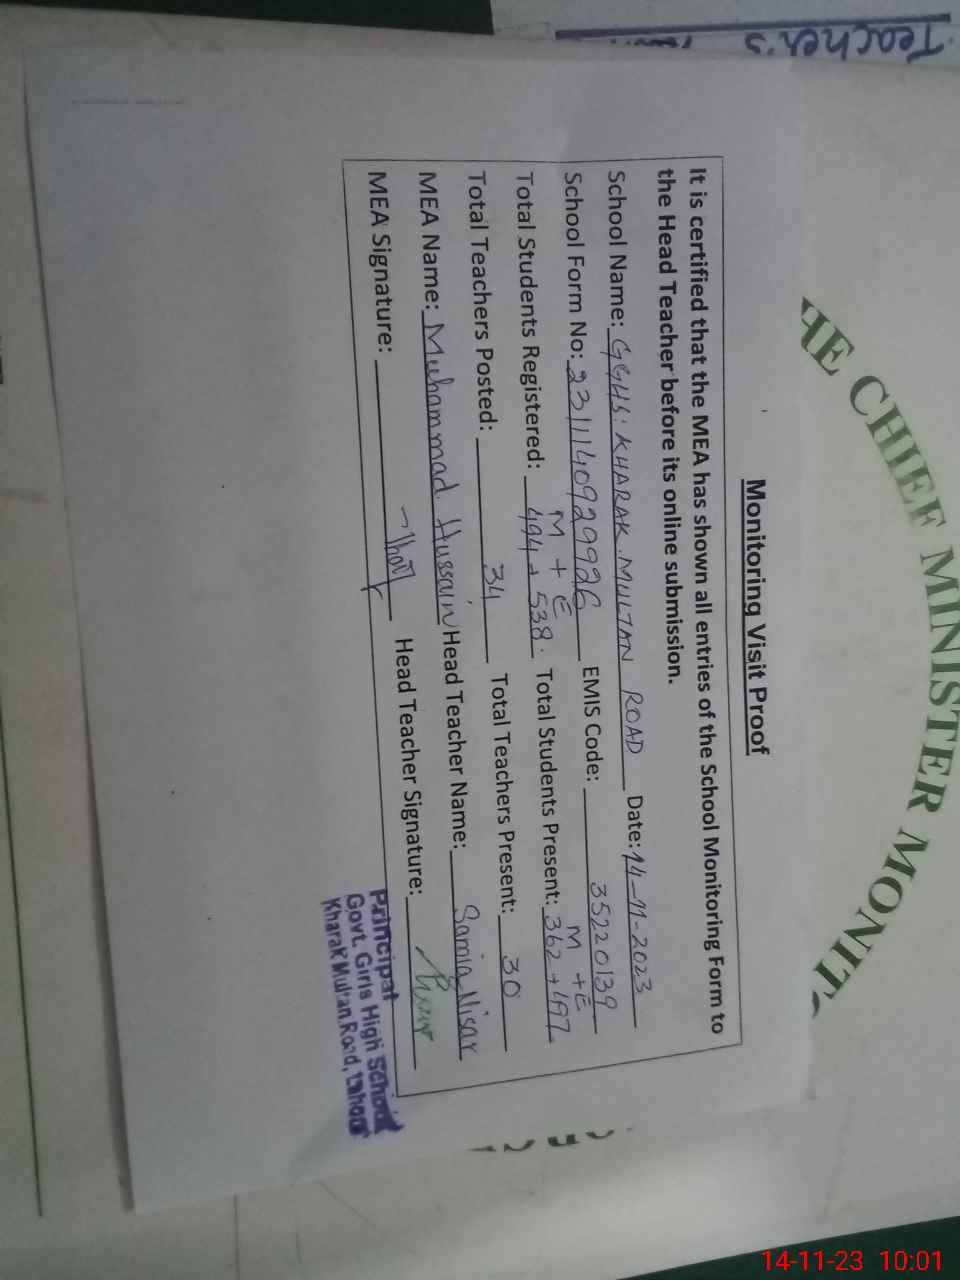 Teacher's
HE CHIEF MINISTER MONIT
Monitoring Visit Proof
It is certified that the MEA has shown all entries of the School Monitoring Form to
the Head Teacher before its online submission.
School Name: GGHS: KHARAK MULTAN ROAD Date: 14-11-2023
School Form No: 231114092 99926 EMIS Code: 35220139
M + E M + E
Total Students Registered: 494 + 538. Total Students Present: 362 + 497
Total Teachers Posted: 34 Total Teachers Present: 30
MEA Name: Muhammad Hussain Head Teacher Name: Samia Nisar
MEA Signature: Head Teacher Signature:
Principal
Govt. Girls High School
Kharak Multan Road, Lahore
14-11-23 10:01